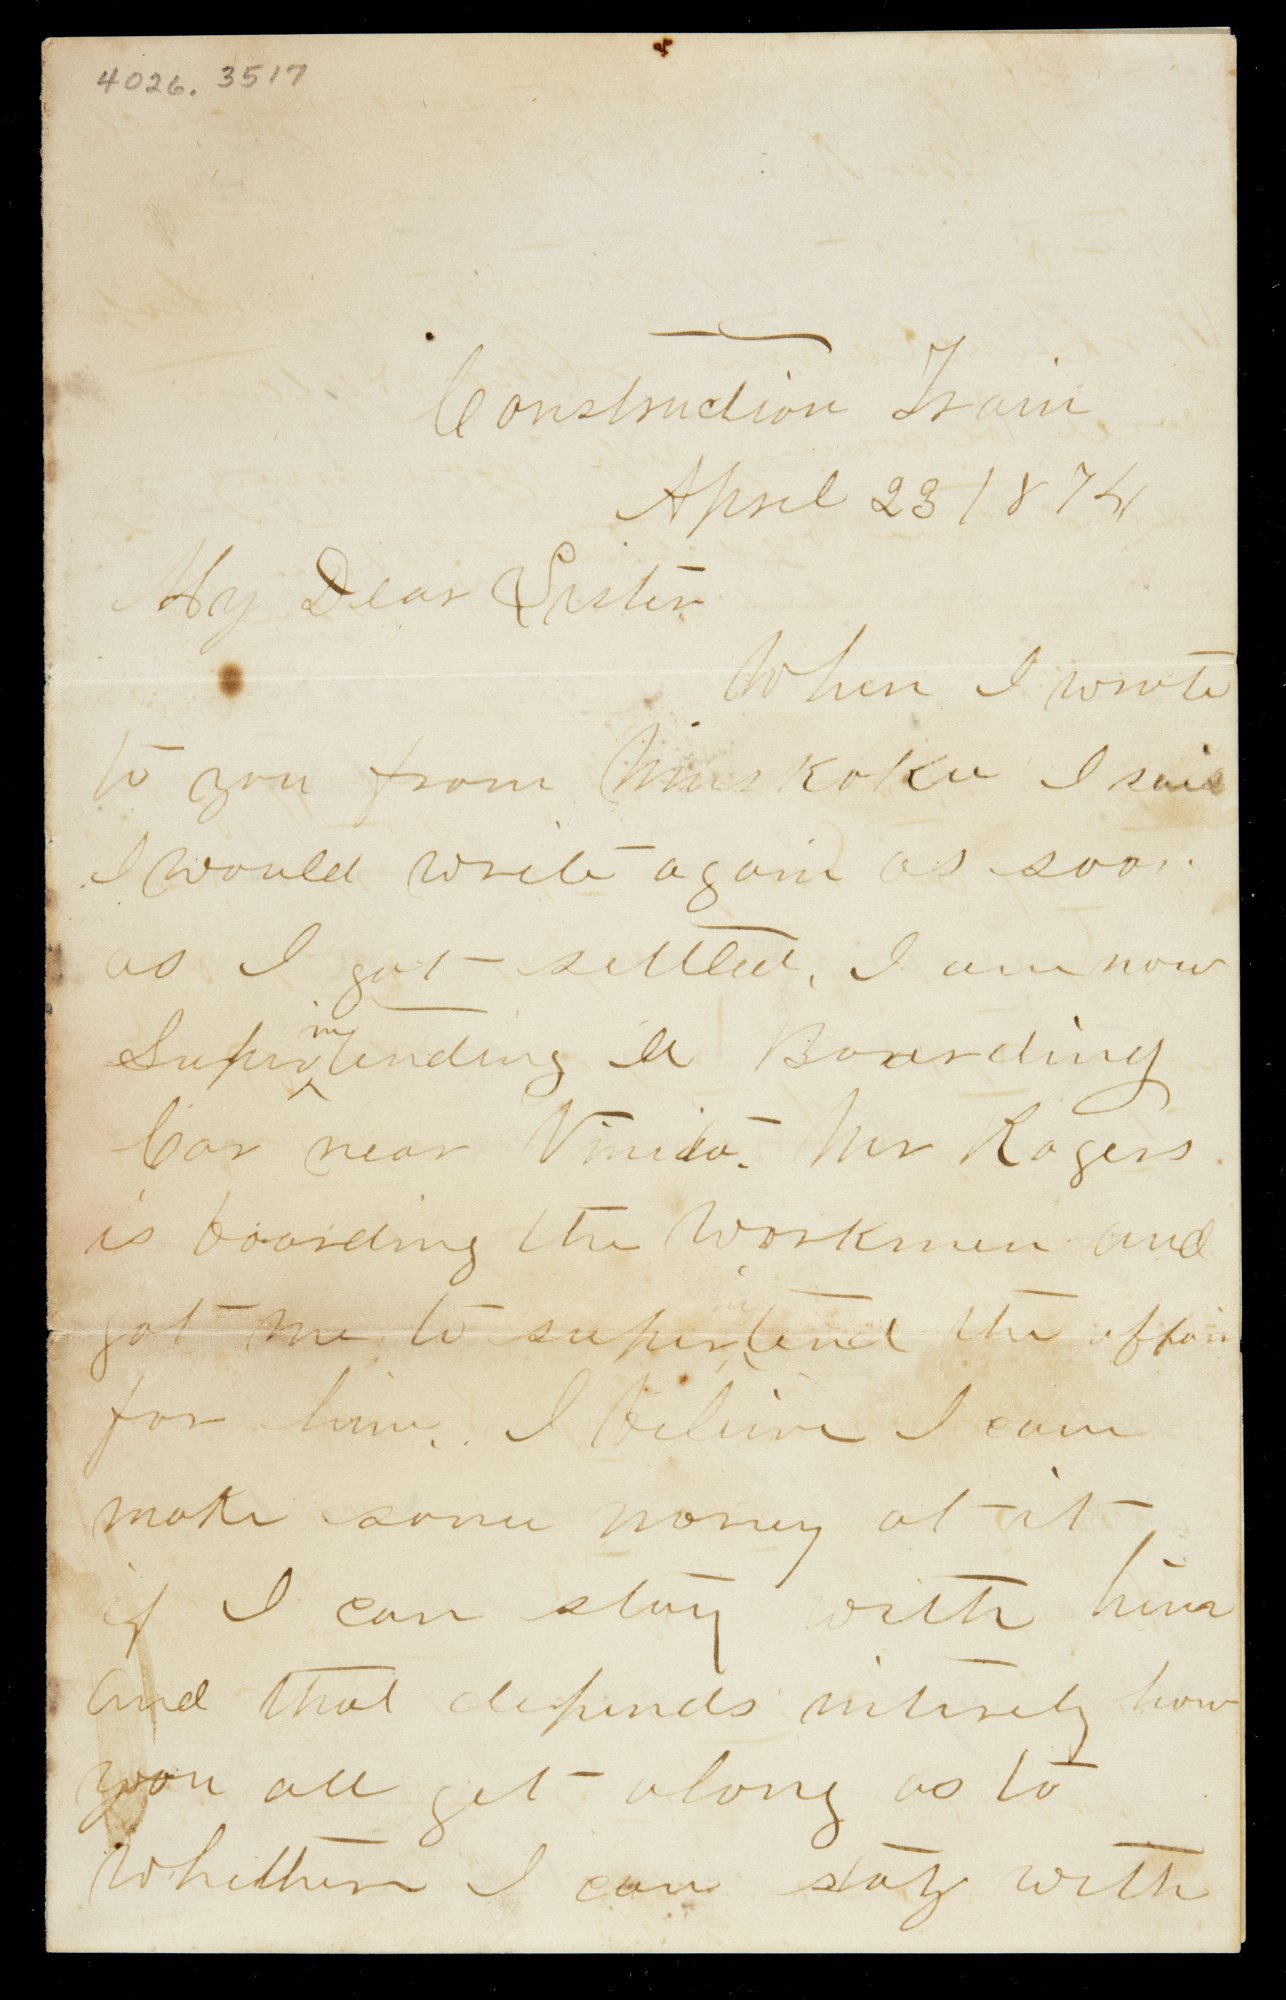 4026.3517
Construction Train
April 23 1874
My Dear Sister
When I wrote
to you from Muskoku I said
I would write again as soon
as I got settled, I am now
Superintending a Boarding
Car near Vinita. Mr Rogers
is boarding the workmen and
got me to superintend the affair
for him. I believe I can
make some money at it
if I can stay with him
and that depends intirely how
you all get along as to
whether I can stay with